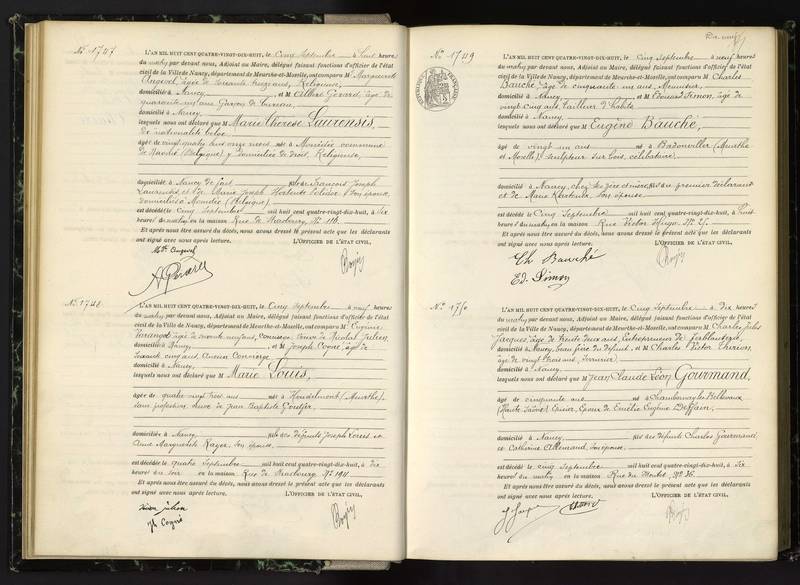 No 1747
L'AN MIL HUIT CENT QUATRE-VINGT-DIX-HUIT, le Cinq Septembre à huit heures
du matin par devant nous, Adjoint au Maire, délégué faisant fonctions d'officier de l'état
civil de la Ville de Nancy, département de Meurthe-et-Moselle, ont comparu M Marguerite
âgée de ans, Religieuse,
domiciliée à Nancy, et M Albert Gérard, âgé de
quarante ans, Garçon de bureau,
domicilié à Nancy,
lesquels nous ont déclaré que M Marie Thérèse Laurensis,
de nationalité belge,
âgée de vingt ans onze mois née à commune
de (Belgique) y domiciliée de droit, Religieuse,
domiciliée à Nancy de fait fille de François Joseph
Laurensis et de Marie Joseph Hortense son épouse,
domiciliés à (Belgique)
est décédée le Cinq Septembre mil huit cent quatre-vingt-dix-huit, à six
heures du matin en la maison Rue de Strasbourg, No
Et après nous être assuré du décès, nous avons dressé le présent acte que les déclarants
ont signé avec nous après lecture. L'OFFICIER DE L'ÉTAT CIVIL,
No 1748
L'AN MIL HUIT CENT QUATRE-VINGT-DIX-HUIT, le Cinq Septembre à neuf heures
du matin par devant nous, Adjoint au Maire, délégué faisant fonctions d'officier de l'état
civil de la Ville de Nancy, département de Meurthe-et-Moselle, ont comparu M Eugénie
âgée de ans, veuve de Nicolas Julien
domiciliée à Nancy, et M Joseph Cogné, âgé de
soixante cinq ans, Ancien Concierge
domicilié à Nancy,
lesquels nous ont déclaré que M Marie Louis,
âgée de quatre vingt trois ans née à Houdelmont (Meurthe),
sans profession, veuve de Jean Baptiste
domiciliée à Nancy fille des défunts Joseph Louis et
Anne Marguerite son épouse,
est décédée le quatre Septembre mil huit cent quatre-vingt-dix-huit, à dix
heures du soir en la maison Rue de Strasbourg No 194.
Et après nous être assuré du décès, nous avons dressé le présent acte que les déclarants
ont signé avec nous après lecture. L'OFFICIER DE L'ÉTAT CIVIL,
Jh Cogné
No 1749
RÉPUBLIQUE FRANÇAISE
L'AN MIL HUIT CENT QUATRE-VINGT-DIX-HUIT, le Cinq Septembre à neuf heures
du matin par devant nous, Adjoint au Maire, délégué faisant fonctions d'officier de l'état
civil de la Ville de Nancy, département de Meurthe-et-Moselle, ont comparu M Charles
Bauché, âgé de cinquante un ans, Menuisier,
domicilié à Nancy et M Edouard Simon, âgé de
vingt cinq ans, tailleur d'habits
domicilié à Nancy,
lesquels nous ont déclaré que M Eugène Bauché,
âgé de vingt un ans né à Badonviller (Meurthe
et Moselle), Sculpteur sur bois, célibataire,
domicilié à Nancy, chez ses père et mère, fils du premier déclarant
et de Marie son épouse
est décédé le Cinq Septembre mil huit cent quatre-vingt-dix-huit, à huit
heures du matin en la maison Rue Victor Hugo, No 25.
Et après nous être assuré du décès, nous avons dressé le présent acte que les déclarants
ont signé avec nous après lecture. L'OFFICIER DE L'ÉTAT CIVIL,
Ch Bauché
Ed. Simon
No 1750
L'AN MIL HUIT CENT QUATRE-VINGT-DIX-HUIT, le Cinq Septembre à dix heures
du matin par devant nous, Adjoint au Maire, délégué faisant fonctions d'officier de l'état
civil de la Ville de Nancy, département de Meurthe-et-Moselle, ont comparu M Charles Jules
Jacques, âgé de trente deux ans, Entrepreneur de ferblanterie,
domicilié à Nancy, beau fils du défunt, et M Charles Victor Thirion,
âgé de vingt trois ans, Serrurier,
domicilié à Nancy,
lesquels nous ont déclaré que M Jean Claude Léon Gourmand,
âgé de cinquante ans né à Chambornay les Bellevaux
(Haute Saône) époux de Emélie Eugénie
domicilié à Nancy fils des défunts Charles Gourmand
et Catherine Allemand, son épouse.
est décédé le cinq Septembre mil huit cent quatre-vingt-dix-huit, à six
heures du matin en la maison Rue du Montet, No 36.
Et après nous être assuré du décès, nous avons dressé le présent acte que les déclarants
ont signé avec nous après lecture. L'OFFICIER DE L'ÉTAT CIVIL,